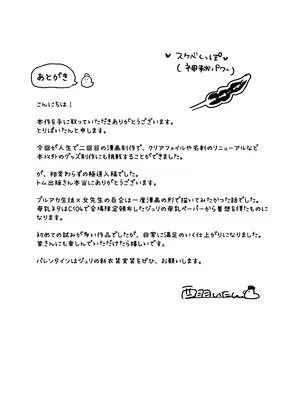 ♥スケベしっぽ♥
(神秘パワー)
あとがき
こんにちは！
本作を手に取っていただきありがとうございます。
とりぱいたんと申します。
今回が人生で二回目の漫画制作で、クリアファイルや名刺のリニューアルなど
本以外のグッズ制作にも挑戦することができました。
が、相変わらずの極道入稿でした。
トム出版さん本当にありがとうございます。
ブルアカ生徒×女先生の百合は一度漫画の形で描いてみたかった話でした。
母乳ネタはC104で会場限定頒布したジュリの母乳ペーパーから着想を得たものに
なります。
初めての試みが多い作品でしたが、非常に満足のいく仕上がりになりました。
皆さんにも楽しんでいただけたら嬉しいです。
バレンタインはジュリの新衣装実装をぜひ、お願いします。